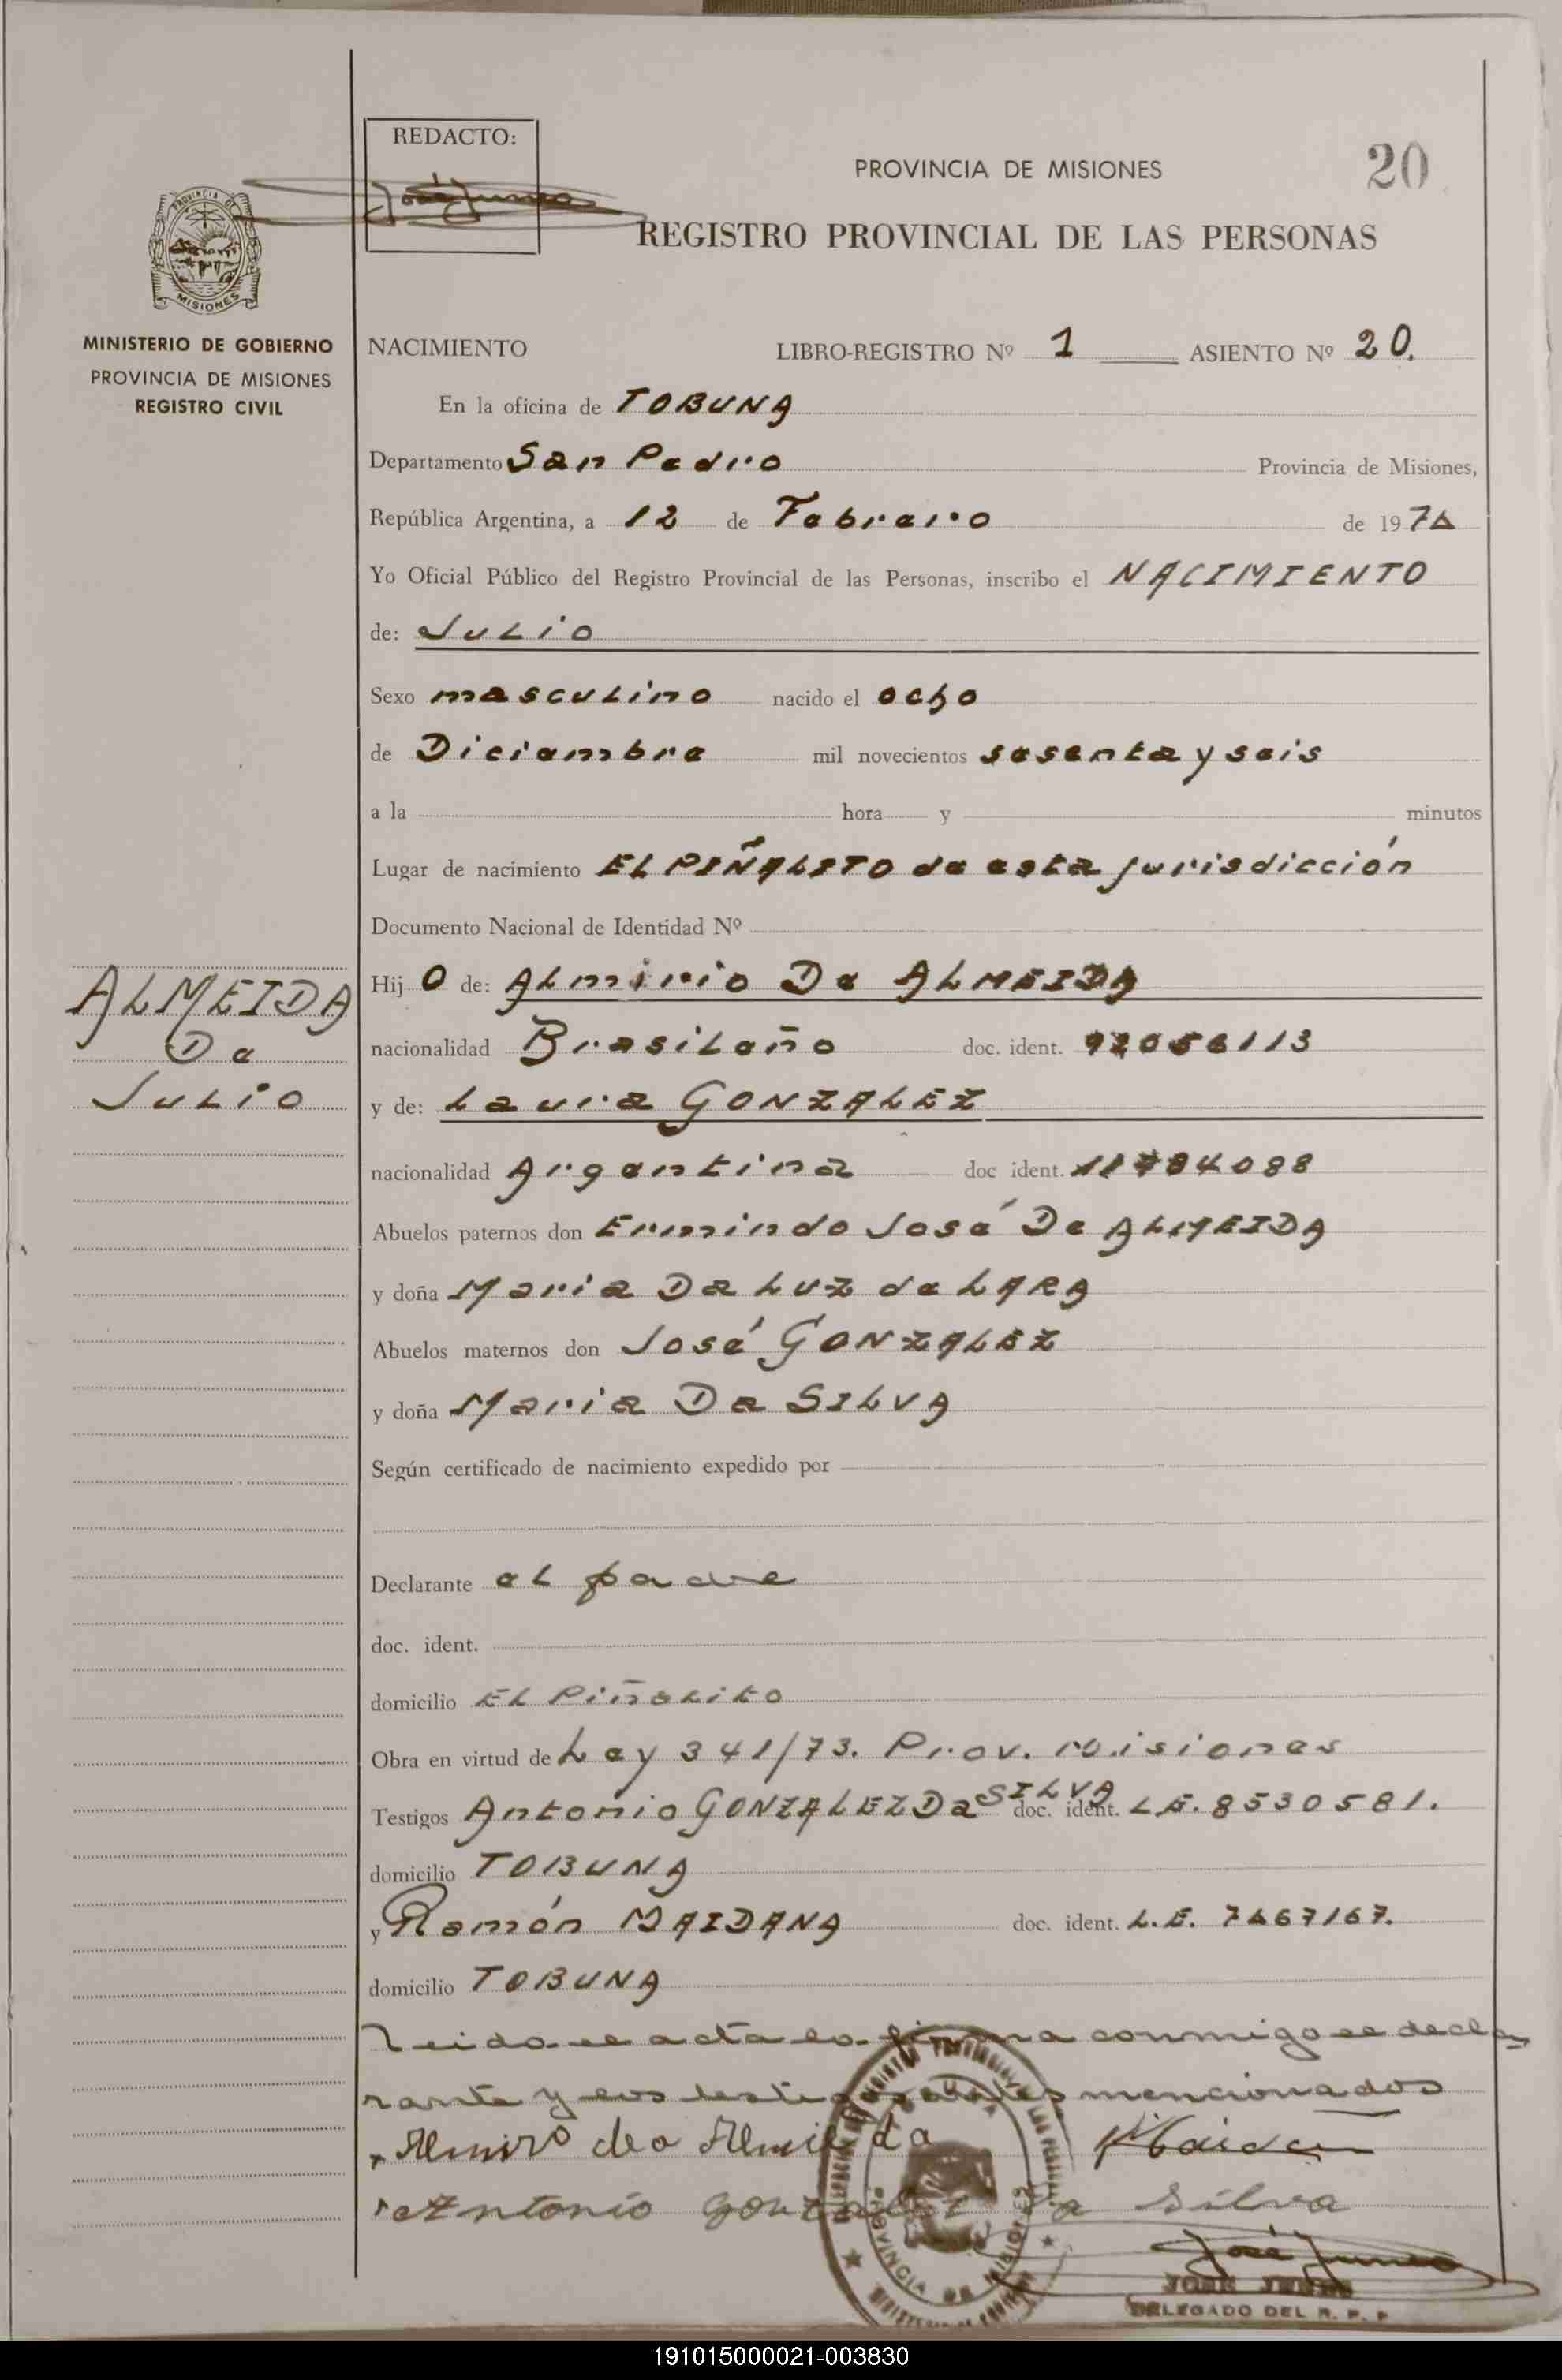 REDACTO:
PROVINCIA DE MISIONES
20
REGISTRO PROVINCIAL DE LAS PERSONAS
PROVINCIA DE
MISIONES
MINISTERIO DE GOBIERNO
PROVINCIA DE MISIONES
REGISTRO CIVIL
NACIMIENTO LIBRO-REGISTRO Nº 1 ASIENTO Nº 20.
En la oficina de TOBUNA
Departamento San Pedro Provincia de Misiones,
República Argentina, a 12 de Febrero de 1974
Yo Oficial Público del Registro Provincial de las Personas, inscribo el NACIMIENTO
de: JULIO
Sexo masculino nacido el ocho
de Diciembre mil novecientos sesenta y seis
a la hora y minutos
Lugar de nacimiento EL PIÑALITO de esta jurisdicción
Documento Nacional de Identidad Nº
Hij o de: Almirio De ALMEIDA
nacionalidad Brasileño doc. ident. 92056113
y de: Laura GONZALEZ
nacionalidad Argentina doc ident. 11784088
Abuelos paternos don Ermindo José De ALMEIDA
y doña Maria Da Luz de LARA
Abuelos maternos don José GONZALEZ
y doña Maria Da SILVA
Según certificado de nacimiento expedido por
Declarante el padre
doc. ident.
domicilio EL Piñalito
Obra en virtud de Ley 341/73. Prov. Misiones
Testigos Antonio GONZALEZ Da SILVA doc. ident. L.E. 8530581.
domicilio TOBUNA
y Ramón MAIDANA doc. ident. L.E. 7467167.
domicilio TOBUNA
Leido el acta lo firma conmigo el decla
rante y los testigos mencionados
Almiro de Almeida
Antonio Gonzalez Da Silva
JOSE
DELEGADO DEL R. P. P
ALMEIDA
De
JULIO
191015000021-003830